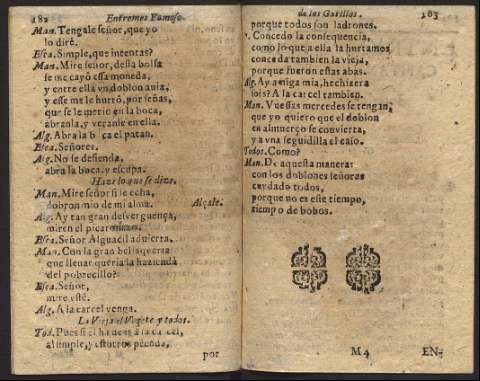 182 Entremes Famoso.
Man. Tengale señor, que yo
lo diré.
Esca. Simple, que intentas?
Man. Mire señor, desta bolsa
se me cayó essa moneda,
y entre ella vn doblon auia,
y esse me le hurtó, por señas,
que se le metio en la boca,
abranla, y veranle en ella.
Alg. Abra la boca el patan.
Esca. Señores.
Alg. No se defienda,
abra la boca, y escupa.
Haze lo que se dize.
Man. Mire señor si le echa,
dobron mio de mi alma. Alçale.
Alg. Ay tan gran desverguença,
miren el picaronazo.
Esca. Señor Alguacil aduierta.
Man. Con la gran bellaqueria
que lleuar queria la hazienda
del pobrecillo?
Esca. Señor,
mire vsté.
Alg. A la carcel venga.
La Vieja el Vegete y todos.
Tod. Pues si el ha de ir a la carcel,
al simple, y
por
de los Gatillos. 183
porque todos son ladrones.
Concedo la consequencia,
como lo que a ella la hurtamos
conceda tambien la vieja,
porque fueron estas abas.
Alg. Ay amiga mia, hechizera
sois? A la carcel tambien.
Man. Vuessas mercedes se tengan,
que yo quiero que el doblon
en almuerço se convierta,
y a vna seguidilla el caso.
Todos. Como?
Man. De aquesta manera:
con los doblones señores
cuydado todos,
porque no es este tiempo,
tiempo de bobos.
M 4 EN-